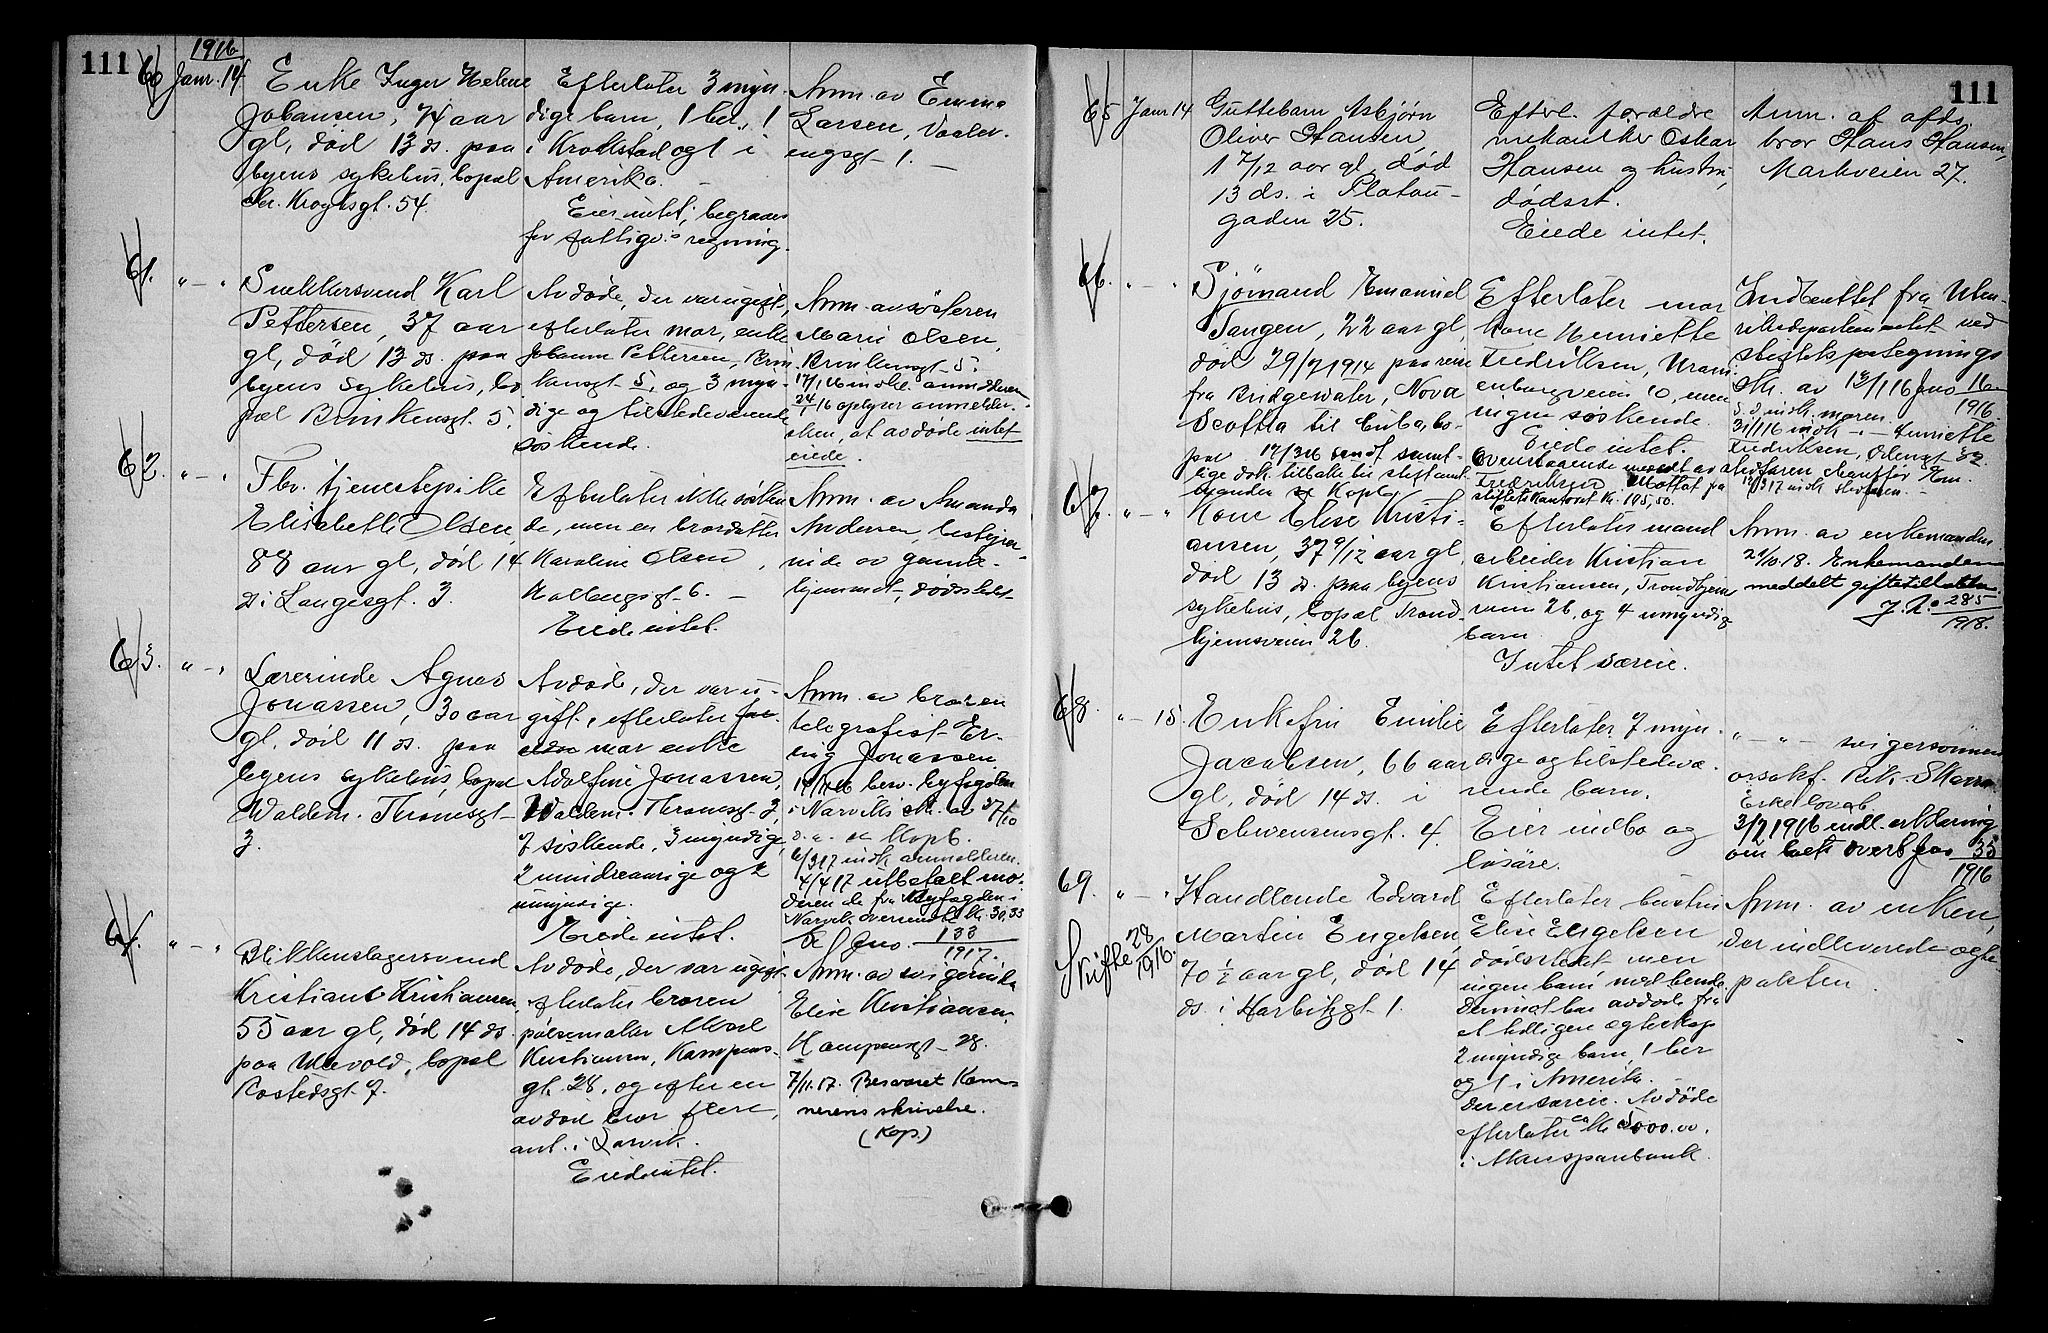 111
1916
60 Janr. 14.
Enke Inger Helene
Johansen, 74 aar
gl, död 13 ds. paa
byens sykehus, bopæl
Chr. Kroghsgt. 54.
Efterlater 3 myn-
dige barn, 1 her, 1
i Krokstad og 1 i
Amerika. –
Eier intet; begraves
for fattigv:s regning.
Anm. av Emma
Larsen, Vaaler-
engsgt. 1. –
61. " – "
Snekkersvend Karl
Pettersen, 37 aar
gl, död 13 ds. paa
byens sykehus, bo
pæl Brinkensgt. 5.
Avdøde, der var ugift,
efterlater mor, enke
Johanne Pettersen, Brin
kensgt. 5, og 3 myn-
dige og tilstedeværende
søskende.
Anm. av søsteren
Marie Olsen,
Brinkensgt. 5.
17/1 16 indk. anmelderen
24/1 16 oplyser anmelder-
sken, at avdøde intet
eiede.
62. " – "
Fhv. tjenestepike
Elisabeth Olsen,
88 aar gl, død 14
ds i Langesgt. 3.
Efterlater ikke søsken
de, men en brordatter
Karoline Olsen,
Holbergsgt. 6. –
Eiede intet.
Anm. av Amanda
Andersen, bestyrer-
inde av gamle-
hjemmet, dødsstedet
63. " – "
Lærerinde Agnes
Jonassen, 30 aar
gl, død 11 ds. paa
byens sykehus, bopæl
Waldem. Thranesgt.
3.
Avdøde, der var u-
gift, efterlater for-
ældre mor enke
Adolfine Jonassen,
Waldem. Thranesgt. 3,
7 søskende, 3 myndige,
2 mindreaarige og 2
umyndige.
Eiede intet.
Anm. av broren
telegrafist Er-
ling Jonassen.
besv. byfogden
i Narviks skr. av 27/10
s. a. se Kopb.
6/3 17 indk anmelderen.
4/4 17 utbetalt mo-
deren de fra Byfogden i
Narvik oversendte kr. 30,33
Jno. 133
1917.
64. " – "
Blikkenslagersvend
Kristian Kristiansen,
55 aar gl, død 14 ds.
paa Ulevold, bopæl
Rostedsgt. 7.
Avdøde, der var ugift,
efterlater broren
pølsemaker Alvart
Kristiansen, Kampens-
gt. 28, og efter en
avdød bror flere,
ant. i Larvik.
Eiede intet.
Anm. av svigerinde
Elise Kristiansen,
Kampensgt. 28.
7/11.17. Besvaret Kem-
nerens skrivelse.
(Kop.)
111
65 Janr 14
Guttebarn Asbjørn
Oliver Hansen,
1 7/12 aar gl, død
13 ds. i Platou-
gaden 25.
Efterl. forældre
mekaniker Oskar
Hansen og hustru,
dødsst.
Eiede intet.
Anm. af afds
bror Hans Hansen,
Markveien 27.
66. " – "
Sjømand Emanuel
Tangen, 22 aar gl,
død 29/7 1914 paa reise
fra Bridgewater, Nova
Scottia til Cuba, bo-
pæl
17/3 16 sendt samt-
lige dok. tilbake til stiftamt
manden se Kopb.
Efterlater mor
kone Henriette
Fredriksen, Urani-
enborgveien 10, men
ingen søskende.
Eiede intet.
Ovenstaaende meddelt av stedfaren
Fredriksen. Mottat fra
stiftets kontoret kr. 105,50.
Indberettet fra Uten-
riksdepartementet ved
stiftets paategnings
skr. av 13/1 16 Jno 16
1916
s. d. indk. moren.
31/1 16 indk – " – Henriette
Fredriksen,
indk stedfaren. –
67. " – "
Kone Elise Kristi-
ansen, 37 9/12 aar gl,
død 13 ds. paa byens
sykehus, bopæl Trond-
hjemsveien 26.
Efterlater mand
arbeider Kristian
Kristiansen, Trondhjems
veien 26, og 4 umyndige
barn.
Intet særeie.
Anm. av enkemanden.
21/10.18. Enkemanden
meddelt giftetillatelse.
J. No 285
1918.
68. " – 15.
Enkefru Emilie
Jacobsen, 66 aar
gl, død 14 ds. i
Schwensensgt. 4.
Efterlater 7 myn-
dige og tilstedevæ-
rende barn.
Eier indbo og
løsøre.
" – " – svigersønnen
3/2 1916 indl. erklæring
om boets overt. Jno 35
1916
69. " – "
Skifte 28
1916.
Handlende Edvard
Martin Engelsen,
70 ½ aar gl, død 14
ds. i Harbitzgt. 1.
Efterlater hustru
Elise Engelsen
dødsstedet men
ingen barn med hende.
Derimot har avdøde fra
et tidligere egteskap
2 myndige barn, 1 her
og 1 i Amerika.
Der er særeie. Avdøde
efterlater ca kr 5000.00.
i Akers sparebank.
Anm. av enken,
der indleverede egte-
pakten.